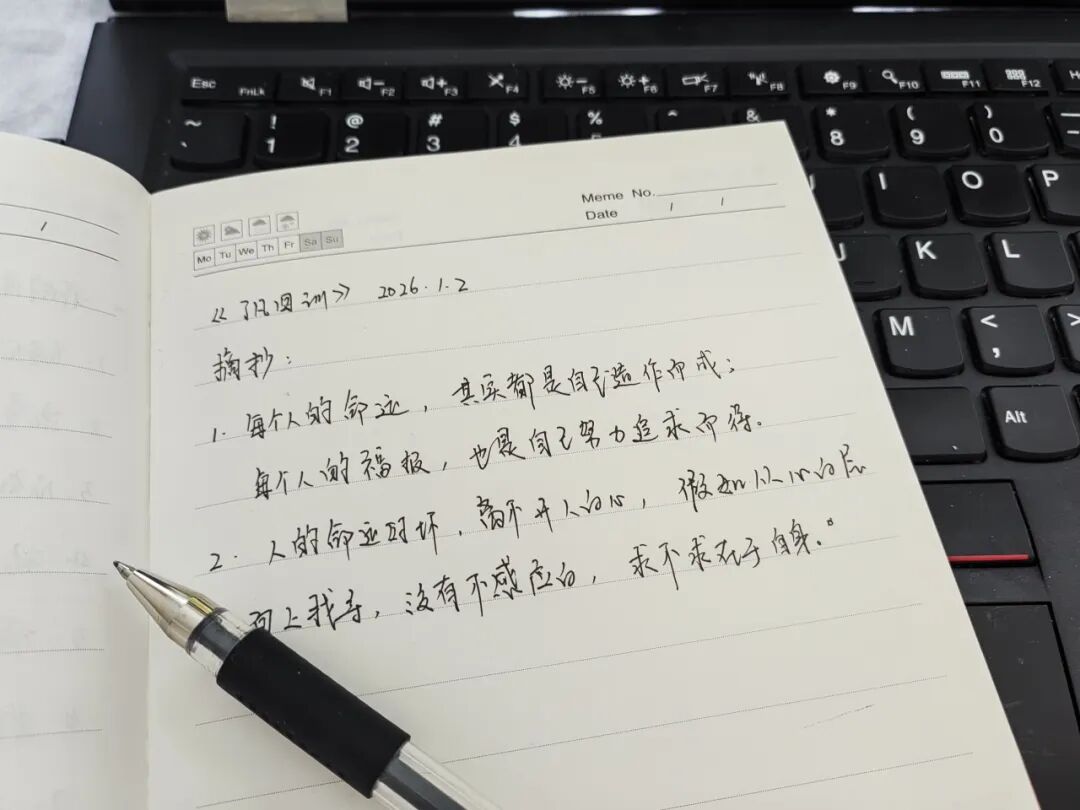 Esc FnLk F1 F2 F3 F4 F5 F6 F7 F8 F9 F10 F11 F12
~ ! @ # $ % ^ & * ( )
` 1 2 3 4 8 9 0
I O P
K L
M < ,
Alt
Meme No.
Date / /
Mo Tu We Th Fr Sa Su
《了凡四训》 2026.1.2
摘抄：
1. 每个人的命运，其实都是自己造作而成；
每个人的福报，也是自己努力追求而得。
2. 人的命运好坏，离不开人的心，假如从心的层
面上找寻，没有不感应的，求不求在于自身。